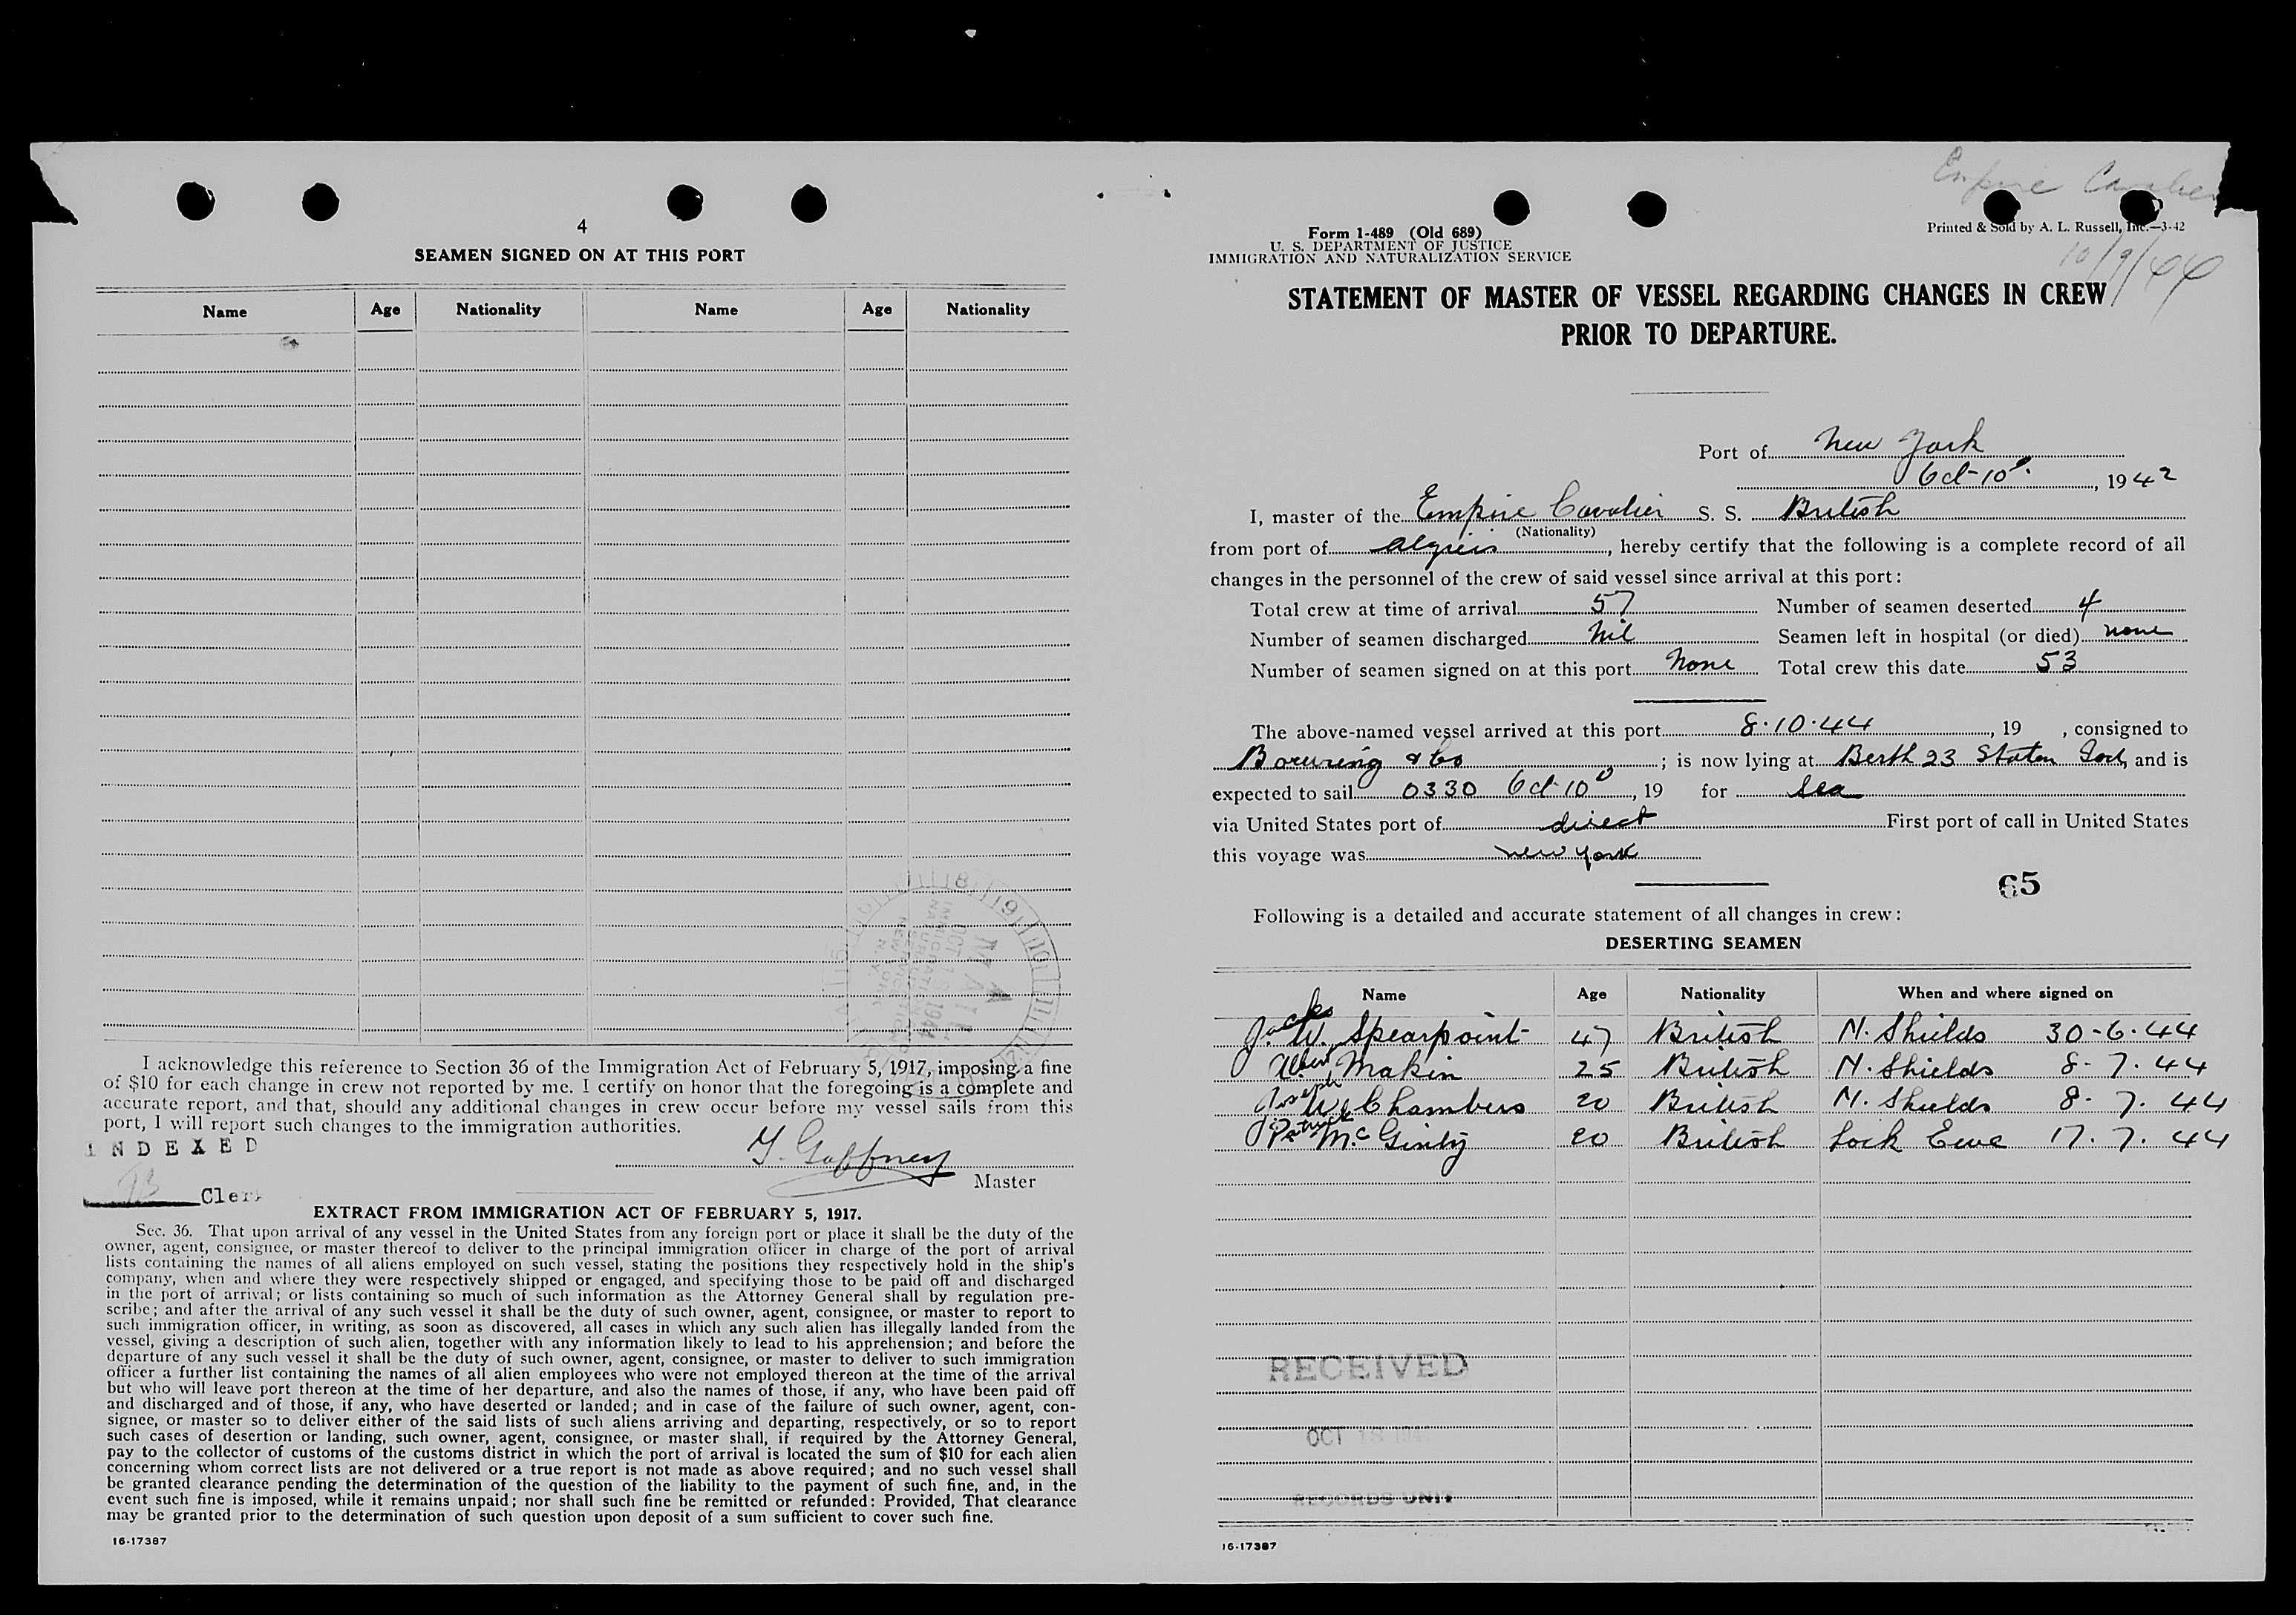 4
SEAMEN SIGNED ON AT THIS PORT
Name Age Nationality Name Age Nationality
I acknowledge this reference to Section 36 of the Immigration Act of February 5, 1917, imposing a fine
of $10 for each change in crew not reported by me. I certify on honor that the foregoing is a complete and
accurate report, and that, should any additional changes in crew occur before my vessel sails from this
port, I will report such changes to the immigration authorities.
INDEXED
Gaffney
Master
Clerk
EXTRACT FROM IMMIGRATION ACT OF FEBRUARY 5, 1917.
Sec. 36. That upon arrival of any vessel in the United States from any foreign port or place it shall be the duty of the
owner, agent, consignee, or master thereof to deliver to the principal immigration officer in charge of the port of arrival
lists containing the names of all aliens employed on such vessel, stating the positions they respectively hold in the ship's
company, when and where they were respectively shipped or engaged, and specifying those to be paid off and discharged
in the port of arrival; or lists containing so much of such information as the Attorney General shall by regulation pre-
scribe; and after the arrival of any such vessel it shall be the duty of such owner, agent, consignee, or master to report to
such immigration officer, in writing, as soon as discovered, all cases in which any such alien has illegally landed from the
vessel, giving a description of such alien, together with any information likely to lead to his apprehension; and before the
departure of any such vessel it shall be the duty of such owner, agent, consignee, or master to deliver to such immigration
officer a further list containing the names of all alien employees who were not employed thereon at the time of the arrival
but who will leave port thereon at the time of her departure, and also the names of those, if any, who have been paid off
and discharged and of those, if any, who have deserted or landed; and in case of the failure of such owner, agent, con-
signee, or master so to deliver either of the said lists of such aliens arriving and departing, respectively, or so to report
such cases of desertion or landing, such owner, agent, consignee, or master shall, if required by the Attorney General,
pay to the collector of customs of the customs district in which the port of arrival is located the sum of $10 for each alien
concerning whom correct lists are not delivered or a true report is not made as above required; and no such vessel shall
be granted clearance pending the determination of the question of the liability to the payment of such fine, and, in the
event such fine is imposed, while it remains unpaid; nor shall such fine be remitted or refunded: Provided, That clearance
may be granted prior to the determination of such question upon deposit of a sum sufficient to cover such fine.
16-17387
Empire Cavalier
Form 1-489 (Old 689)
U. S. DEPARTMENT OF JUSTICE
IMMIGRATION AND NATURALIZATION SERVICE
Printed & Sold by A. L. Russell, Inc.—3-42
10/9/44
STATEMENT OF MASTER OF VESSEL REGARDING CHANGES IN CREW
PRIOR TO DEPARTURE.
Port of New York
Oct-10, 1942
I, master of the Empire Cavalier S. S. British
(Nationality)
from port of Algiers, hereby certify that the following is a complete record of all
changes in the personnel of the crew of said vessel since arrival at this port:
Total crew at time of arrival 57 Number of seamen deserted 4
Number of seamen discharged Nil Seamen left in hospital (or died) none
Number of seamen signed on at this port None Total crew this date 53
The above-named vessel arrived at this port 8.10.44, 19 , consigned to
Bowring & Co; is now lying at Berth 23 Staten Isd, and is
expected to sail 0330 Oct 10, 19 for Sea
via United States port of direct First port of call in United States
this voyage was new york
65
Following is a detailed and accurate statement of all changes in crew:
DESERTING SEAMEN
Name Age Nationality When and where signed on
J. W. Spearpoint 47 British N. Shields 30-6-44
Albert Makin 25 British N. Shields 8-7.44
Joseph W Chambers 20 British N. Shields 8-7.44
Patrick McGinty 20 British Lock Ewe 17.7.44
RECEIVED
OCT 18
RECORDS UNIT
16-17387